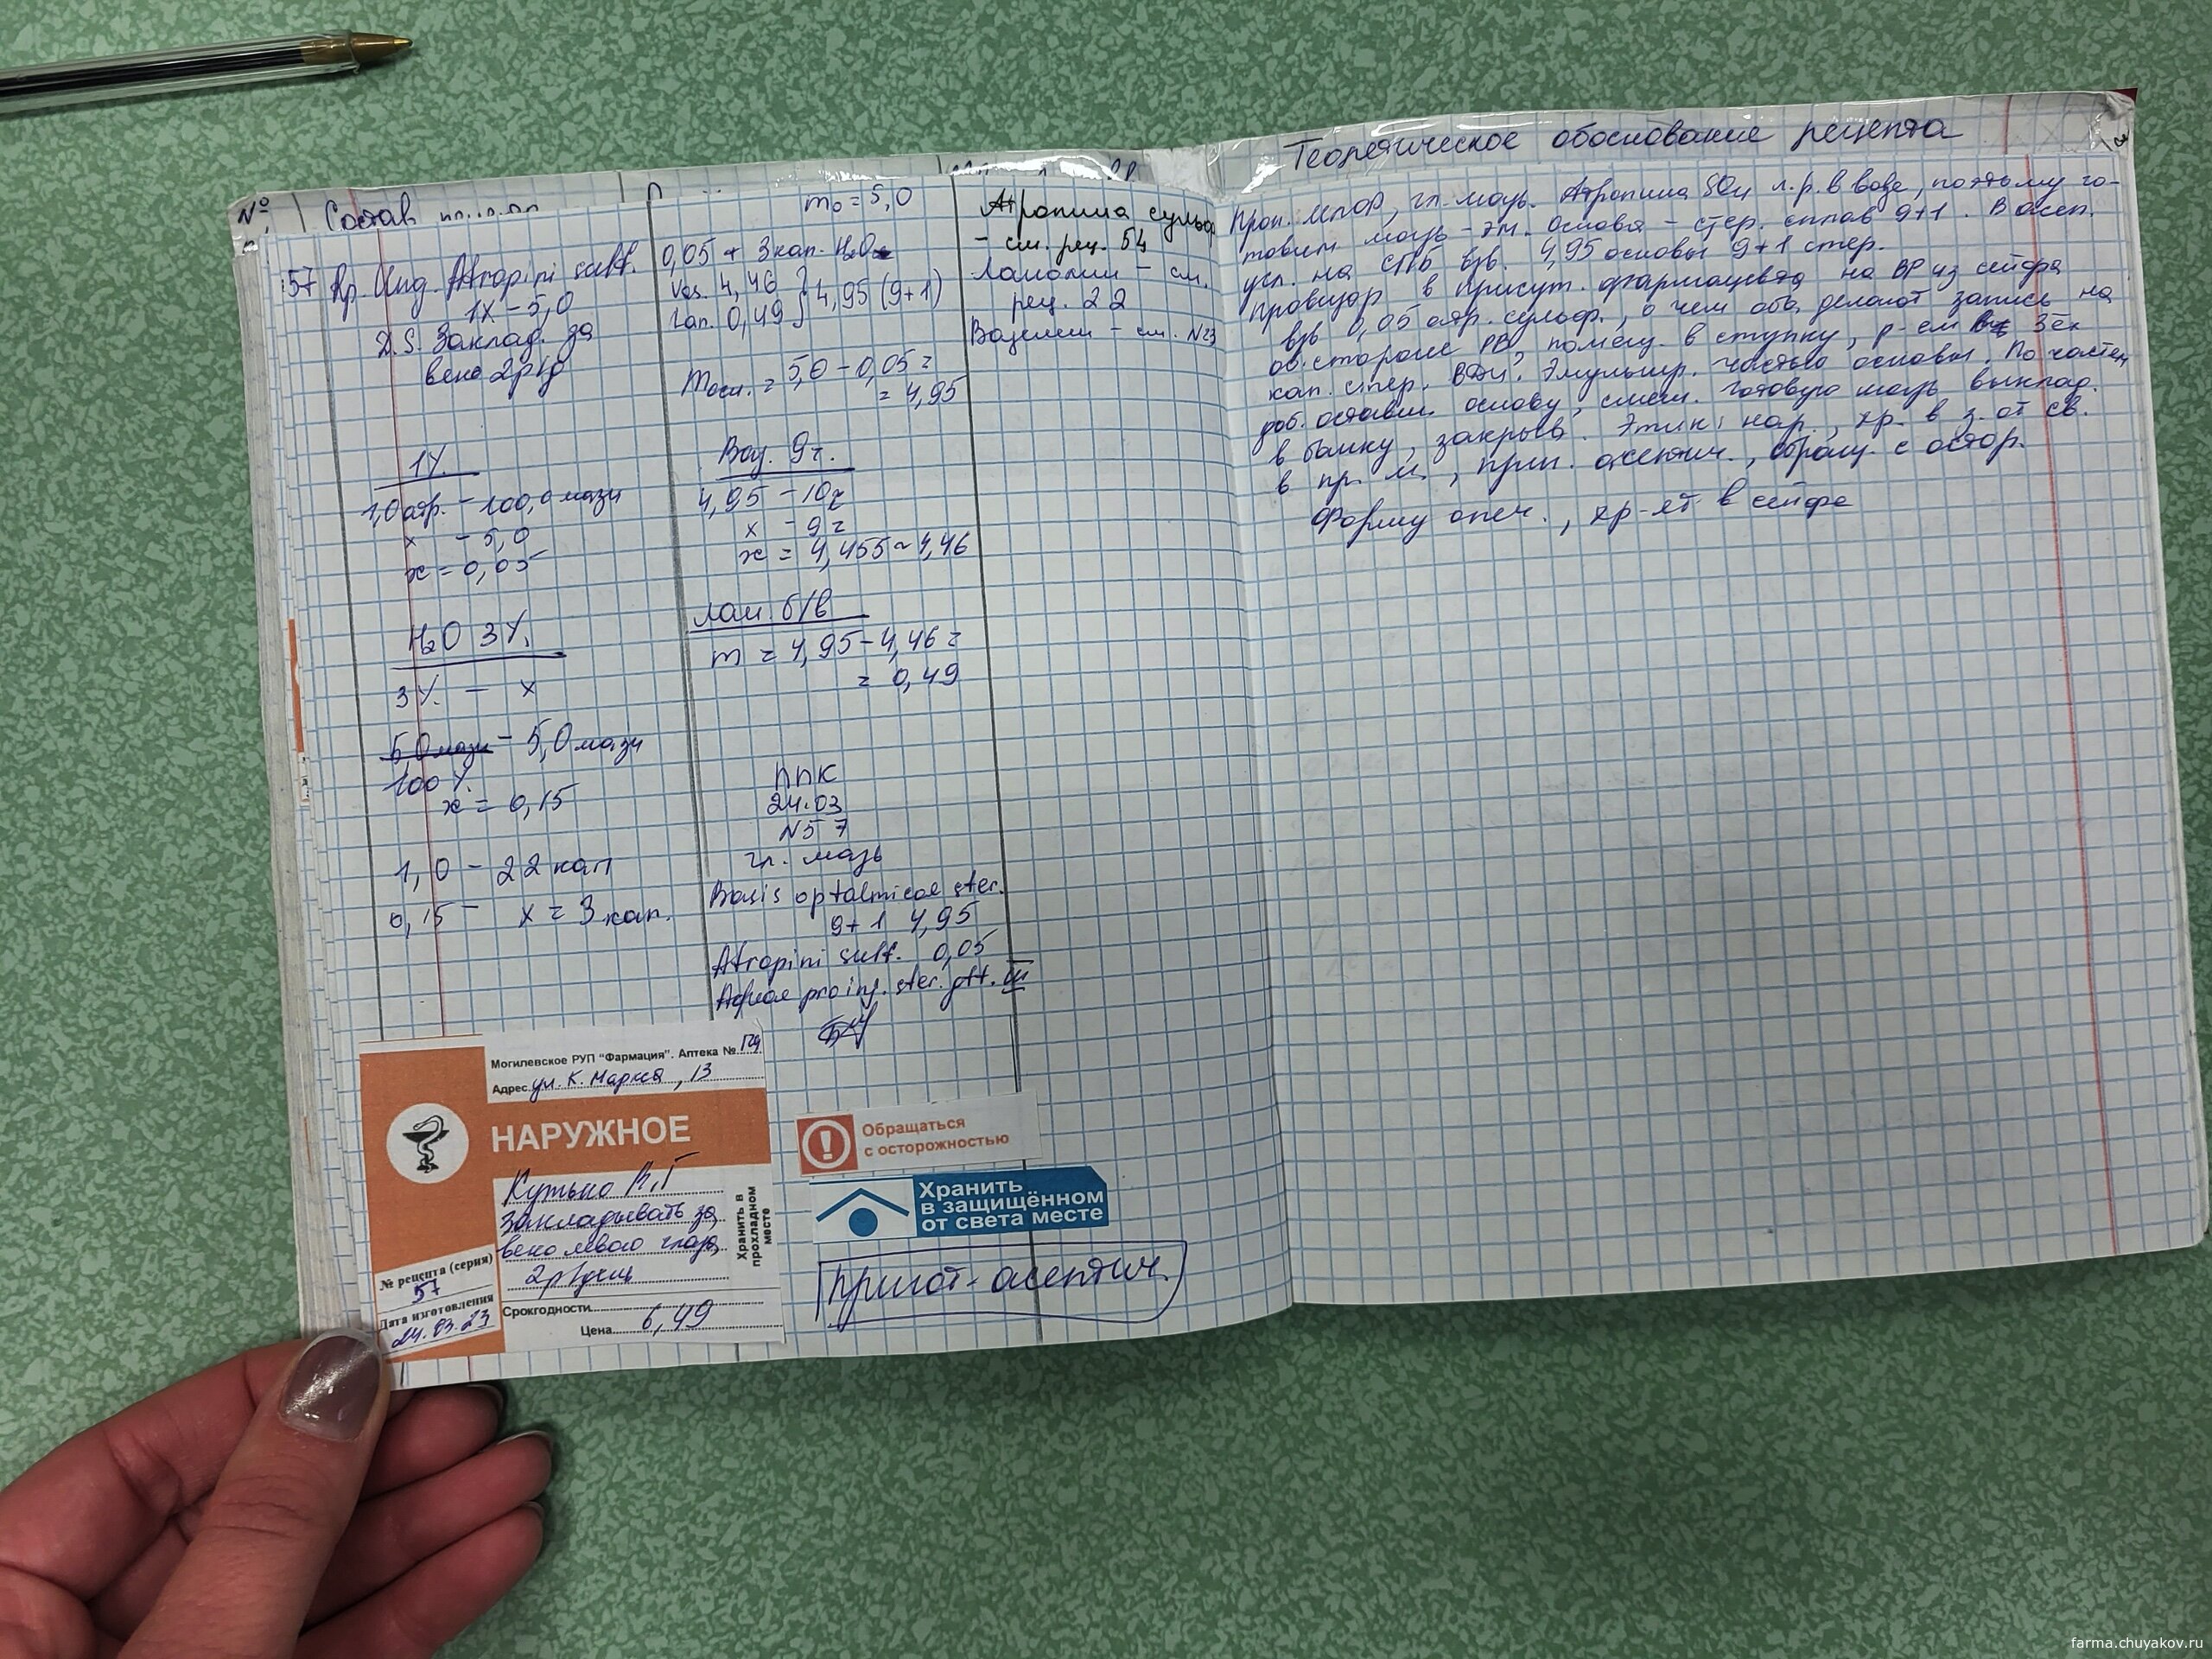 №
Состав
57 Rp. Ung. Atropini sulf.
1% - 5,0
D.S. Заклад. за
веко 2р/д
1%
1,0 атр. - 100,0 мази
x - 5,0
x = 0,05
H₂O 3%
3% - x
5,0 мази - 5,0 мази
100%
x = 0,15
1,0 - 22 кап
0,15 - x = 3 кап.
m₀ = 5,0
0,05 + 3 кап. H₂O
Vas. 4,46
Лан. 0,49 } 4,95 (9+1)
mосн. = 5,0 - 0,05 =
= 4,95
Ваз. 9г.
4,95 - 10г
x - 9г
x = 4,455 ~ 4,46
Лан. б/в
m = 4,95 - 4,46 =
= 0,49
ППК
24.03
N57
гл. мазь
Basis optalmicae ster.
9+1 4,95
Atropini sulf. 0,05
Aquae pro inj. ster. gtt. III
Атропина сульф
- см. рец. 54
Ланолин - см.
рец. 22
Вазелин - см. N23
Могилевское РУП "Фармация". Аптека №
Адрес ул. К. Маркса, 13
НАРУЖНОЕ
Закладывать за
веко левого глаза
2р/день
Хранить в
прохладном
месте
№ рецепта (серия)
57
Дата изготовления
24.03.23
Срок годности
Цена 6,49
Обращаться
с осторожностью
Хранить
в защищённом
от света месте
Пригот. асептич.
Теоретическое обоснование рецепта
Проп. МПОФ, гл. мазь. Атропина SO₄ л.р. в воде, поэтому го-
товим мазь - эм. Основа - стер. сплав 9+1. В асеп.
усл. на взв. 4,95 основы 9+1 стер.
Провизор в присут. фармацевта на ВР из сейфа
взв 0,05 атр. сульф., о чем оба делают запись на
об. стороне РВ, помещ. в ступку, р-ем 3ех
кап. стер. ВДИ. Эмульгир. частью основы. По частям
доб. оставш. основу, смеш. Готовую мазь выклад.
в банку, закрыв. Этик: нар., хр. в з. от св.
в пр. м., приг. асептич., обращ. с остор.
Форму опеч., хр-ят в сейфе
farma.chuyakov.ru